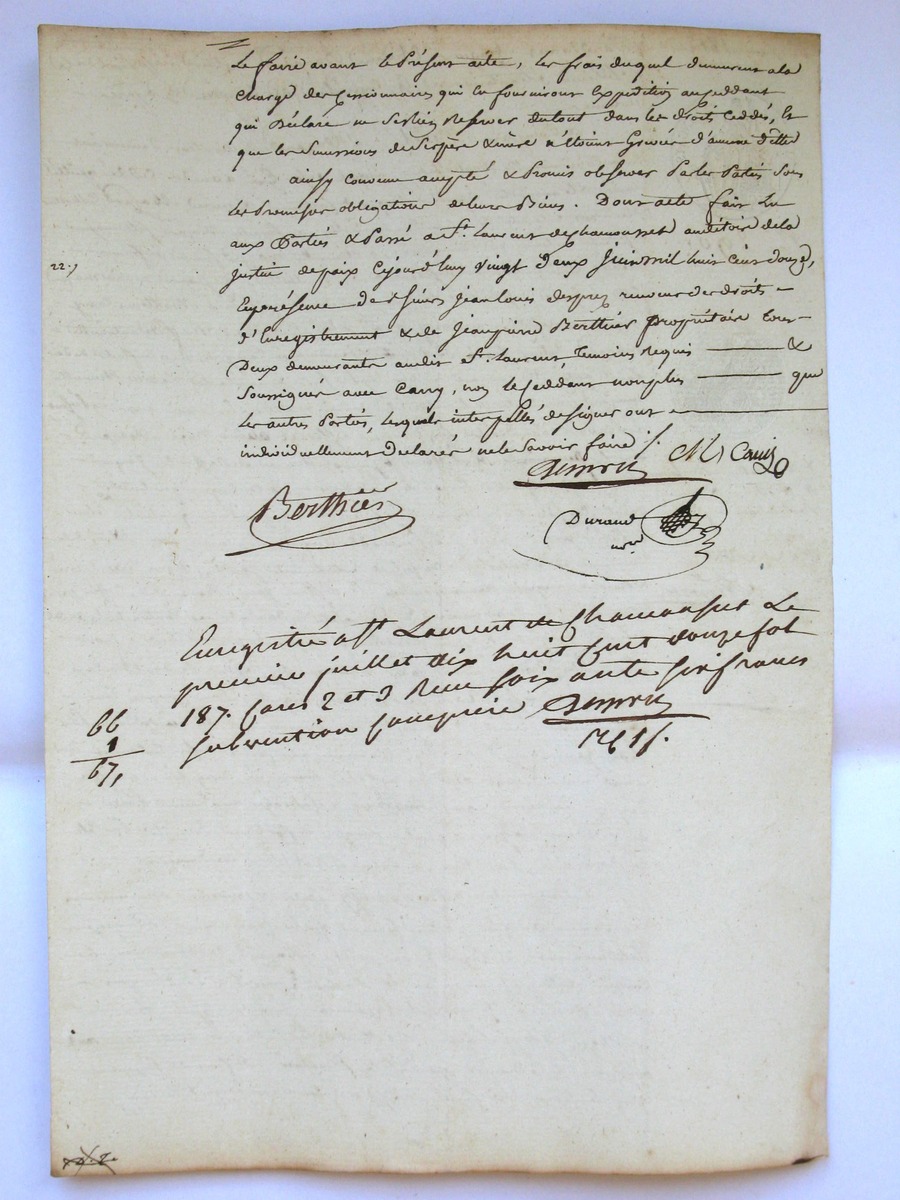 Le faire avant le Présent acte, les frais duquel demeurent a la
charge des Cessionnaires qui en fourniront Expedition au Ceddant
qui Déclare ne Ses Rien Reserver du tout dans les droits Ceddés, Et
que les Successions de Ses père & mère n'étoient Grevées d'aucune dette
ainsy convenu accepté & Promis observer Par les Parties Sous
les Promesses obligations de leurs Biens. Dont acte fait Lu
aux Parties & Passé a St. Laurent de chamousset auditoire de la
22.
justice de paix Cejourd'huy vingt Deux Juin mil huit Cent douze,
En présence de Sieurs Jean Louis desprez receveur des droits
d'Enregistrement & de Jean pierre Berthier propriétaire tous
Deux demeurants audit St. Laurent temoins Requis &
Soussignés avec Cany, non le Ceddant non plus que
les autres Parties, lesquels interpellés de signer ont
individuellement Declarés ne le Savoir faire
Berthier
Durand
Enregistré a St Laurent de Chamousset Le
premier juillet dix huit cent douze fol
187. cases 2 et 3 Recu soixante six francs
66
1
67,
subvention